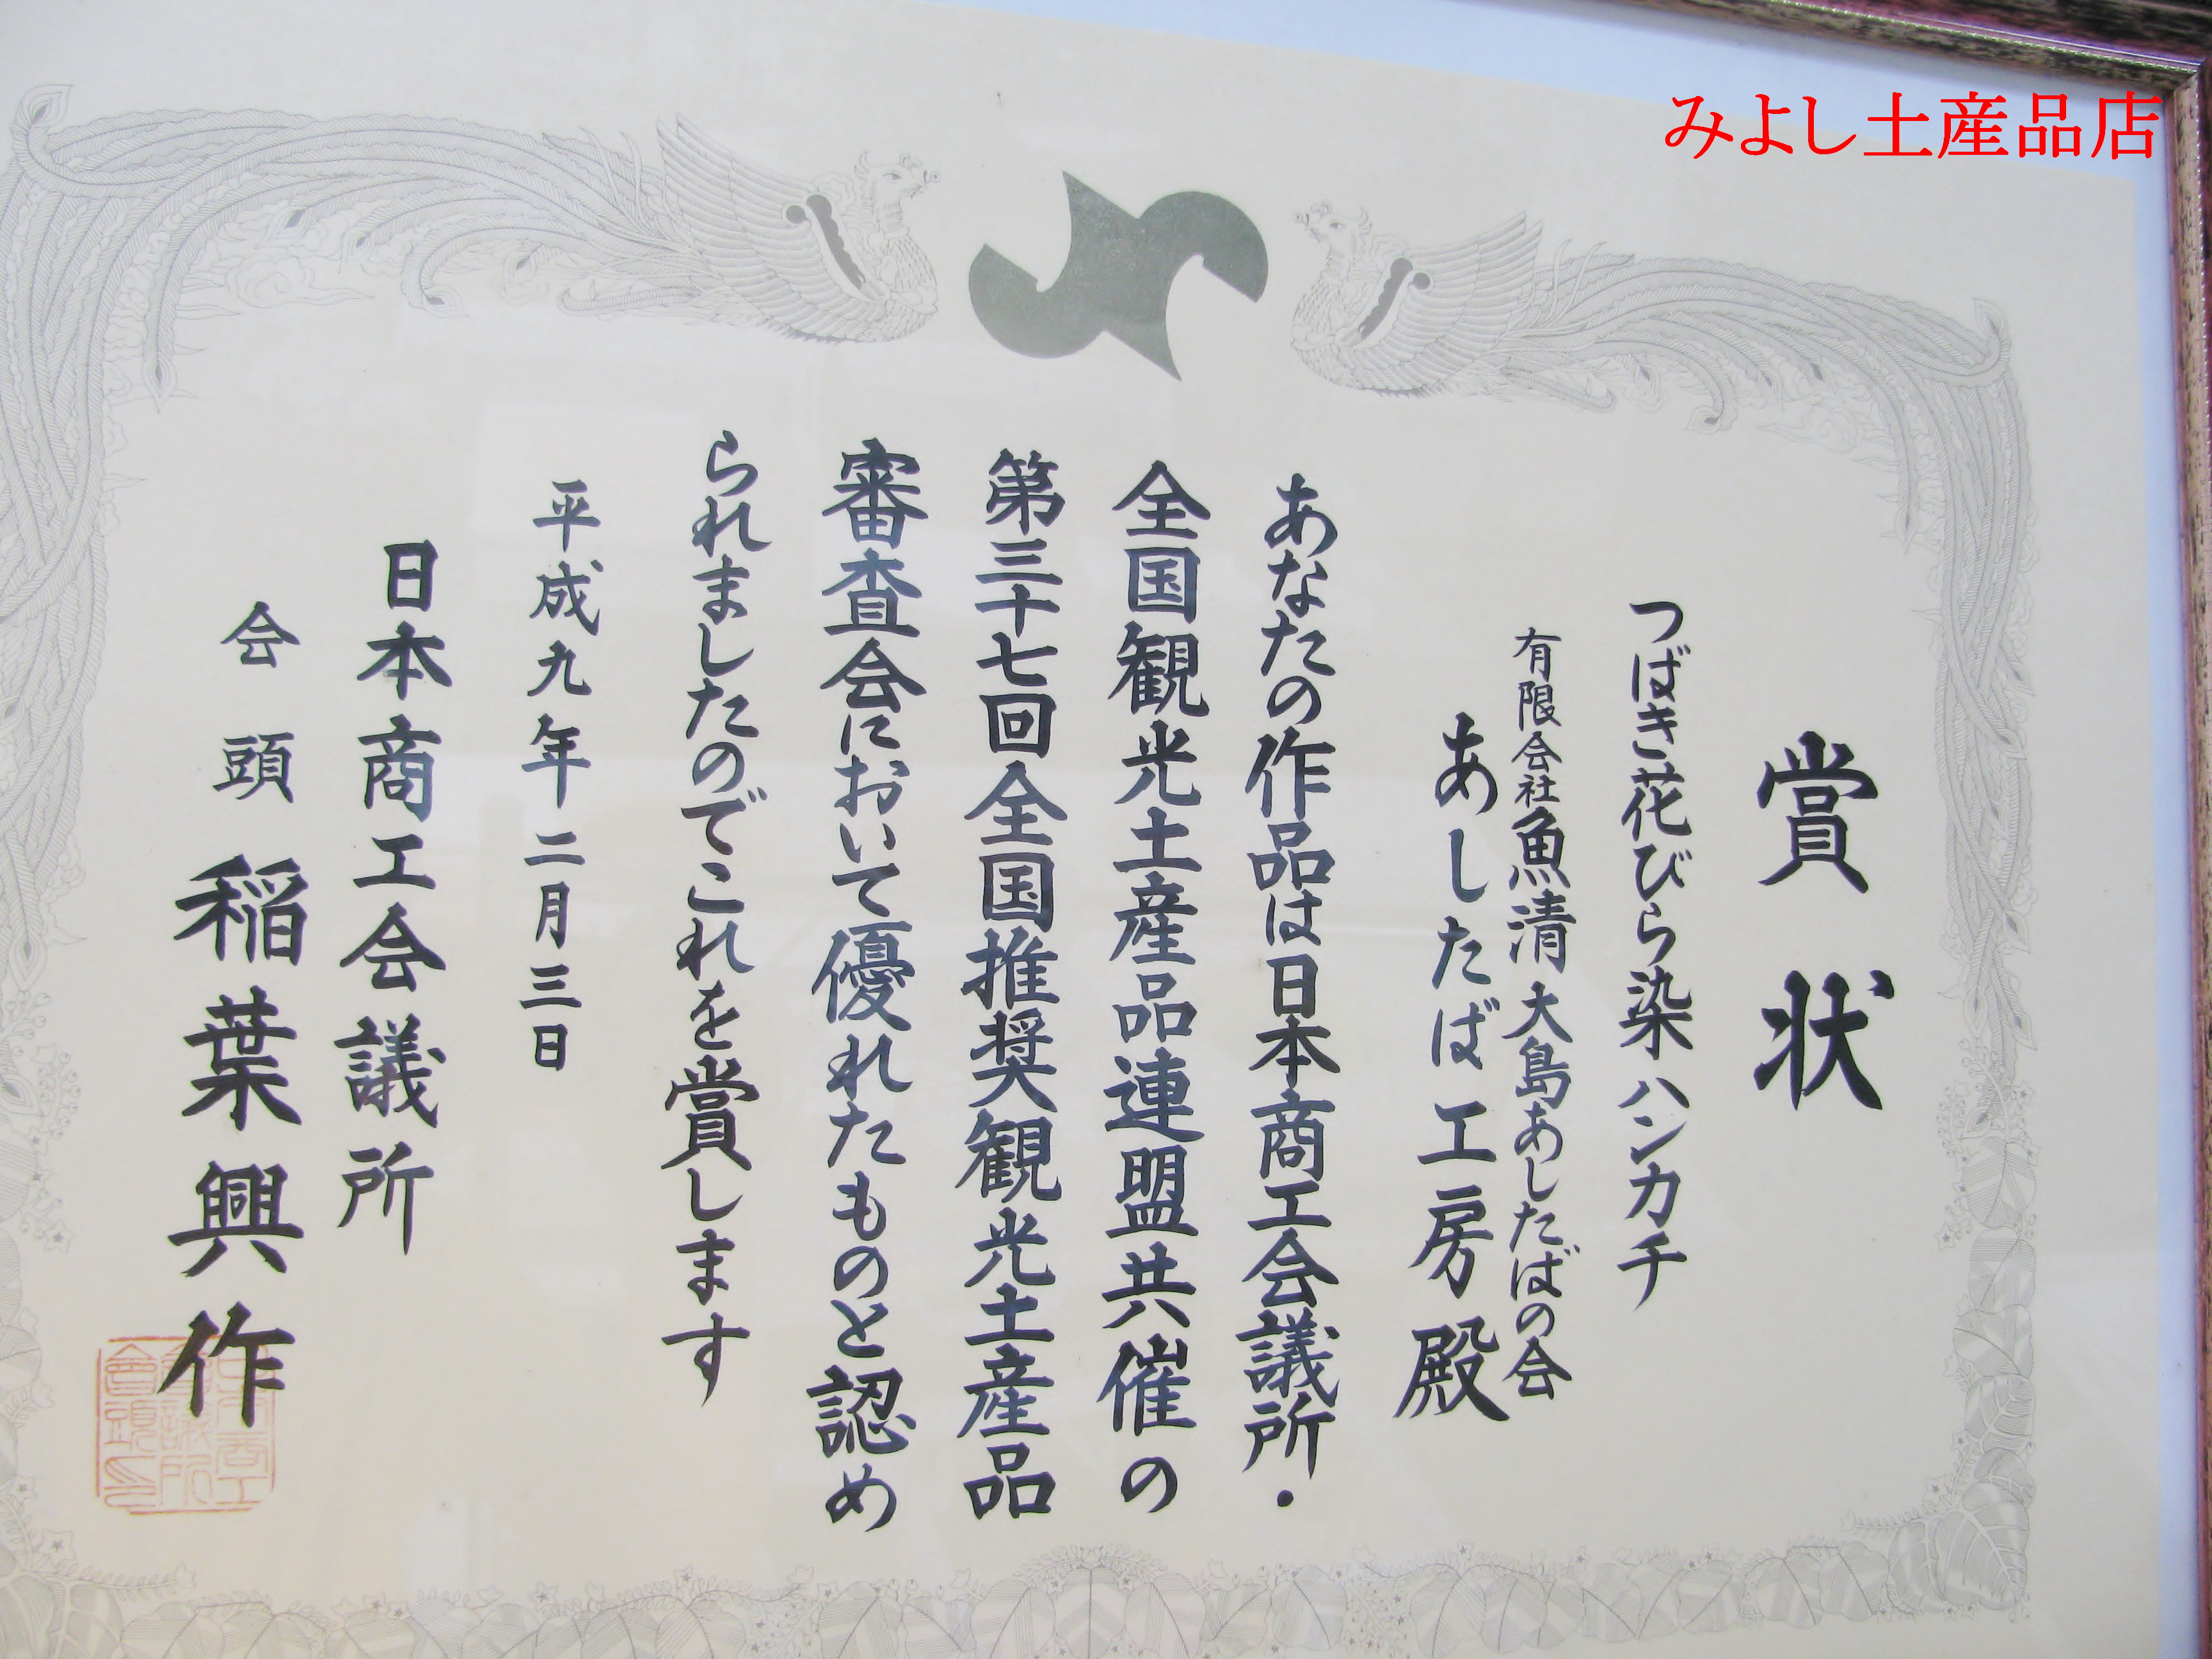 みよし土産品店
賞状
つばき花びら染ハンカチ
有限会社魚清 大島あしたばの会
あしたば工房殿
あなたの作品は日本商工会議所・
全国観光土産品連盟共催の
第三十七回全国推奨観光土産品
審査会において優れたものと認め
られましたのでこれを賞します
平成九年二月三日
日本商工会議所
会頭 稲葉興作